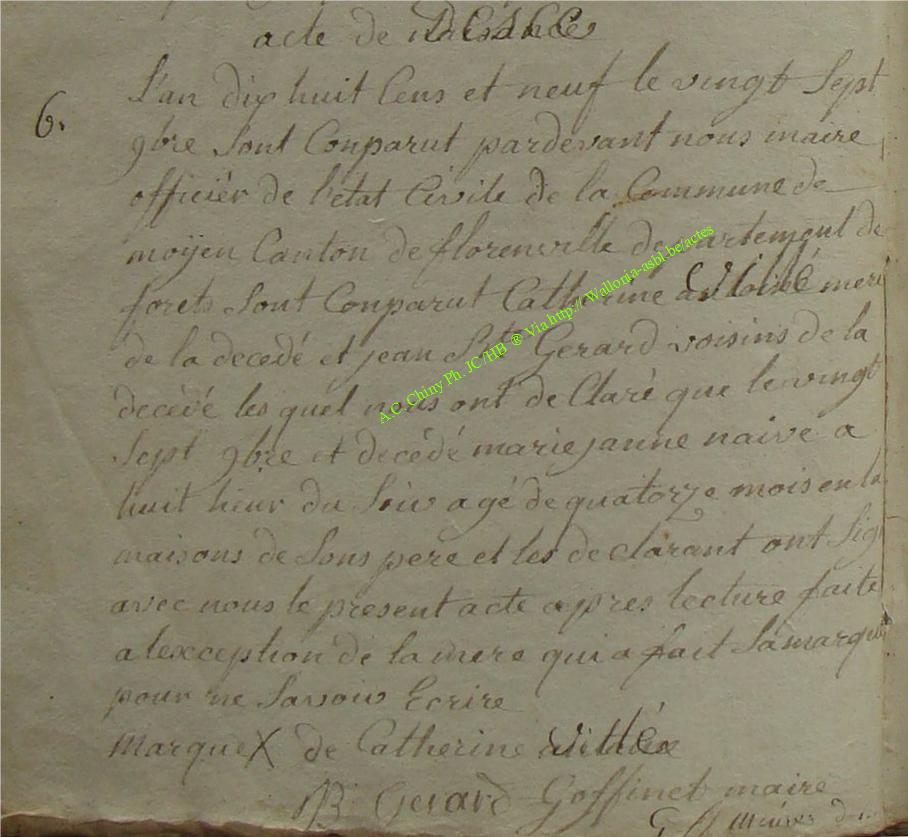 acte de décés
6. L'an dix huit Cens et neuf le vingt Sept
9bre Sont Conparut pardevant nous maire
officiér de l'etat Civile de la Commune de
moÿen Canton de florenville departement de
forets Sont Conparut Catherine mere
de la decedé et jean Bte Gerard voisins de la
decedé les quel nous ont de Claré que le vingt
Sept 9bre et décédé marie janne naive a
huit heur du Soir agé de quatorze mois en la
maisons de Sons pere et les de clarant ont Sig
avec nous le present acte apres lecture faite
a lexception de la mere qui a fait Sa marque
pour ne Savoir Ecrire
marque X de Catherine
JB Gerard Goffinet maire
A.C. Chiny Ph. JC /HB ® Via http://Wallonia-asbl.be/actes